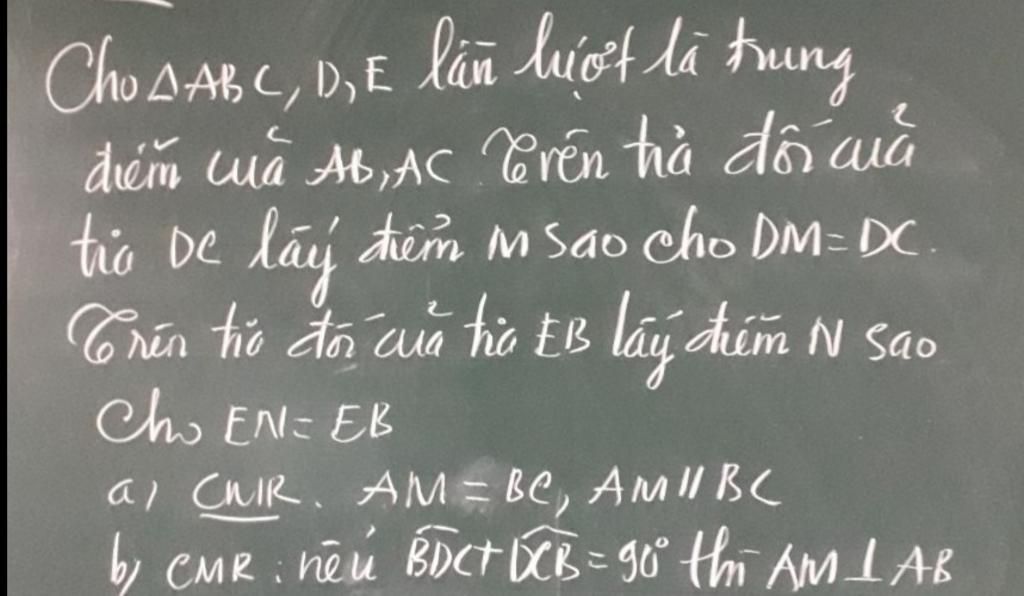 Cho △ABC, D, E lần lượt là trung
điểm của AB, AC. Trên tia đối của
tia DC lấy điểm M sao cho DM = DC.
Trên tia đối của tia EB lấy điểm N sao
cho EN = EB
a) CMR. AM = BC, AM // BC
b) CMR: nếu \widehat{BDC} + \widehat{DCB} = 90° thì AM ⊥ AB